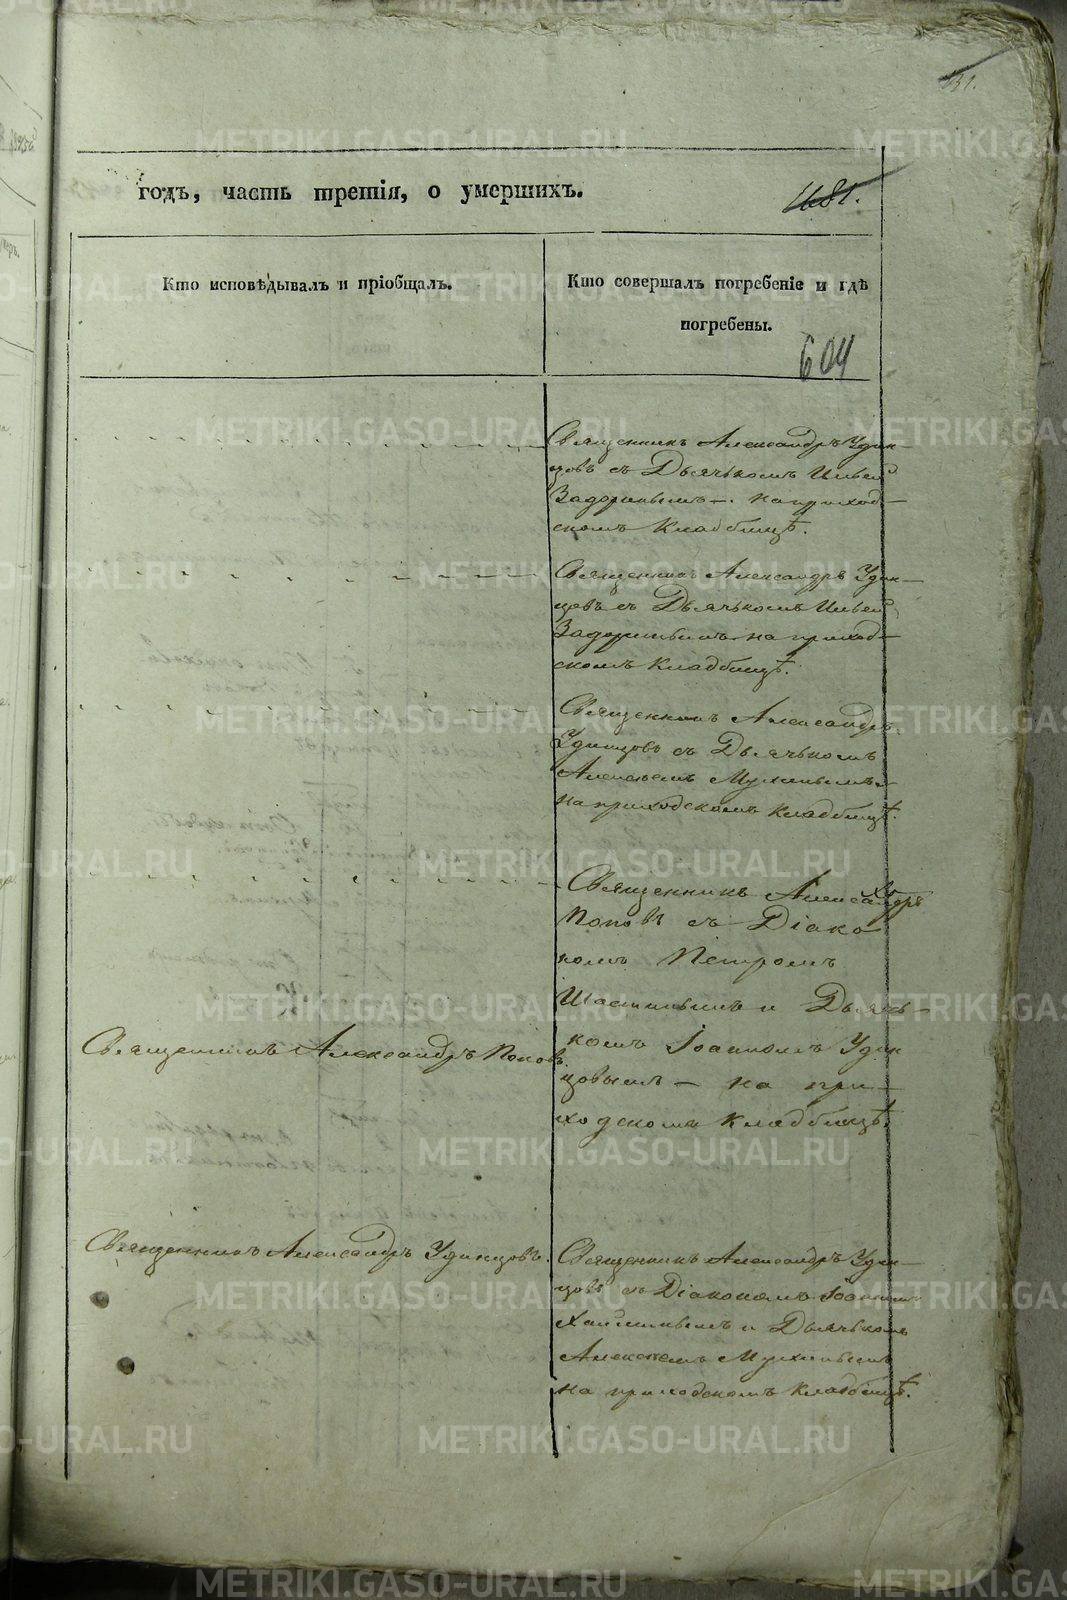 131.
годъ, часть третія, о умершихъ.
1681.
Кто исповѣдывалъ и пріобщалъ.
Кто совершалъ погребеніе и гдѣ
погребены.
604
Священникъ Александръ Удин-
цовъ съ Дьячькомъ
Задоринымъ — на приход-
скомъ Кладбищѣ.
Священникъ Александръ Удин-
цовъ съ Дьячькомъ
Задоринымъ на приход-
скомъ Кладбищѣ.
Священникъ Александръ
Удинцовъ съ Дьячькомъ
Алексѣемъ Мухинымъ
на приходскомъ Кладбищѣ.
Священникъ Александръ
Поповъ съ Діако
номъ Петромъ
и Дьячь-
комъ Іоанномъ Удин
цовымъ — на при-
ходскомъ Кладбищѣ.
Священникъ Александръ Поповъ
Священникъ Александръ Удинцовъ.
Священникъ Александръ Удин-
цовъ съ Діакономъ Іоанномъ
и Дьячькомъ
Алексѣемъ Мухинымъ
на приходскомъ Кладбищѣ.
METRIKI.GASO-URAL.RU